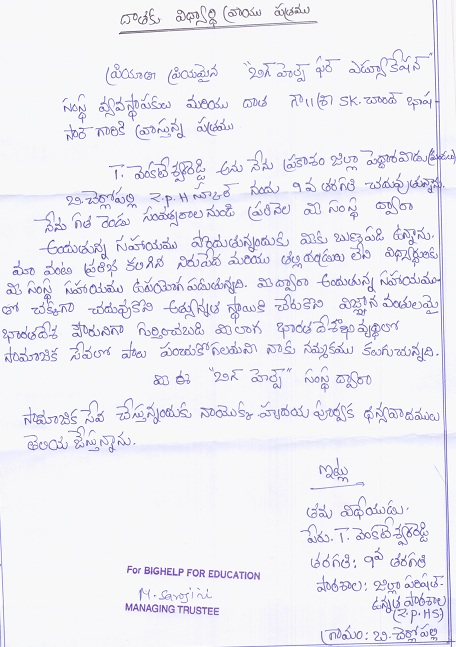 దాతకు విద్యార్థి వ్రాయు పత్రము
ప్రియాతి ప్రియమైన "బిగ్ హెల్ప్ ఫర్ ఎడ్యుకేషన్"
సంస్థ వ్యవస్థాపకులు మరియు దాత గౌ||శ్రీ SK. చాంద్ భాష
సార్ గారికి వ్రాస్తున్న పత్రము
T. వెంకటేశ్వరరెడ్డి అను నేను ప్రకాశం జిల్లా పెద్దారవీడు(మండలం)
బి. చెర్లోపల్లి Z.P.H స్కూల్ నందు 9వ తరగతి చదువుతున్నాను.
నేను గత రెండు సంవత్సరాలనుండి ప్రతినెల మీ సంస్థ ద్వారా
అందుతున్న సహాయము పొందుతున్నందుకు మీకు ఋణపడి ఉన్నాను.
మా వంటి ప్రతిభ కలిగిన నిరుపేద మరియు తల్లిదండ్రులు లేని విద్యార్థులకు
మీ సంస్థ సహాయము ఉపయోగపడుతున్నది. మీ ద్వారా అందుతున్న సహాయము
తో చక్కగా చదువుకొని అత్యున్నత స్థాయికి చేరుకొని విజ్ఞాన వంతులమై
భారతదేశ పౌరునిగా గుర్తించబడి మీలాగ భారతదేశాభివృద్ధిలో
సామాజిక సేవలో పాలు పంచుకోగలమని నాకు నమ్మకము కలుగుచున్నది.
మీ ఈ "బిగ్ హెల్ప్" సంస్థ ద్వారా
సామాజిక సేవ చేస్తున్నందుకు నాయొక్క హృదయ పూర్వక ధన్యవాదములు
తెలియ జేస్తున్నాను.
ఇట్లు
తమ విధేయుడు.
పేరు. T. వెంకటేశ్వరరెడ్డి
తరగతి: 9వ తరగతి
పాఠశాల: జిల్లా పరిషత్
ఉన్నత పాఠశాల
(Z.P.HS)
గ్రామం: బి. చెర్లోపల్లి
For BIGHELP FOR EDUCATION
M. Sarojini
MANAGING TRUSTEE